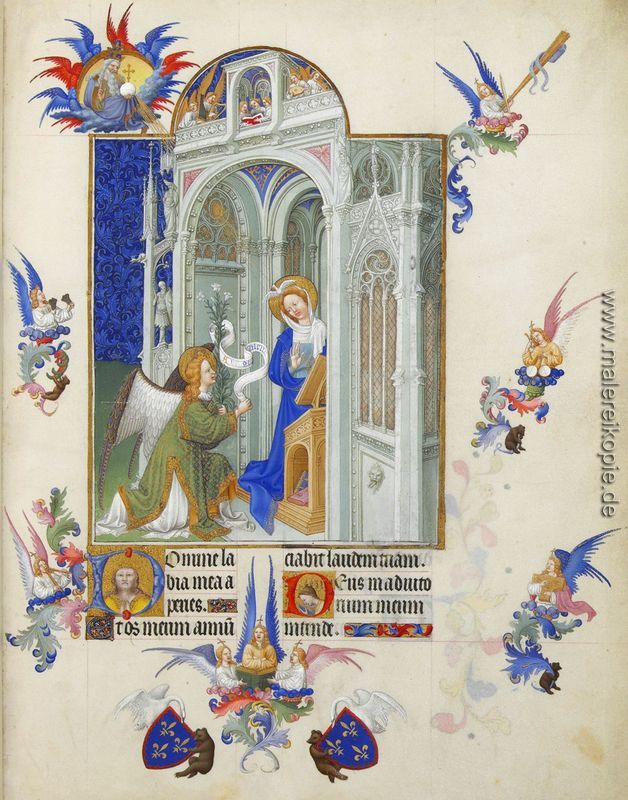 Domine la
bia mea a
peries.
Et os meum annū
ciabit laudem tuam.
Deus in adiuto
rium meum
intende.
www.malereikopie.de